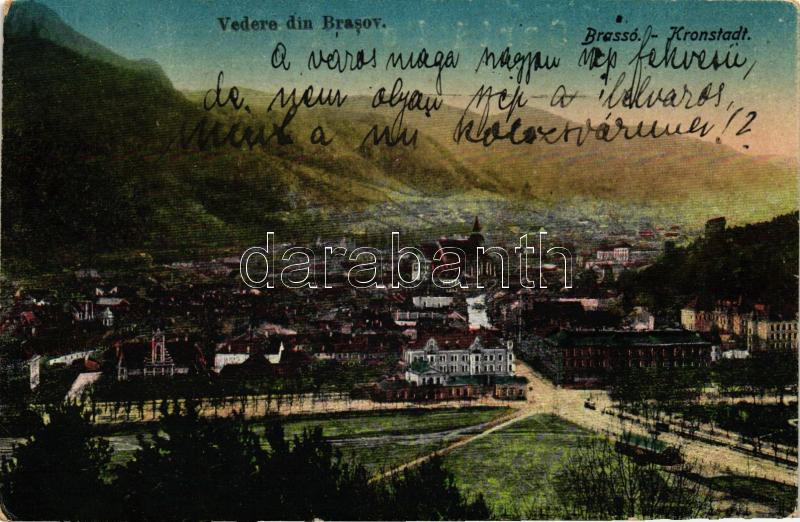 Vedere din Brașov.
Brassó. - Kronstadt.
A város maga nagyon szép fekvésü,
de nem olyan szép a belváros,
mint a mi Kolozsvárunk!?
darabanth